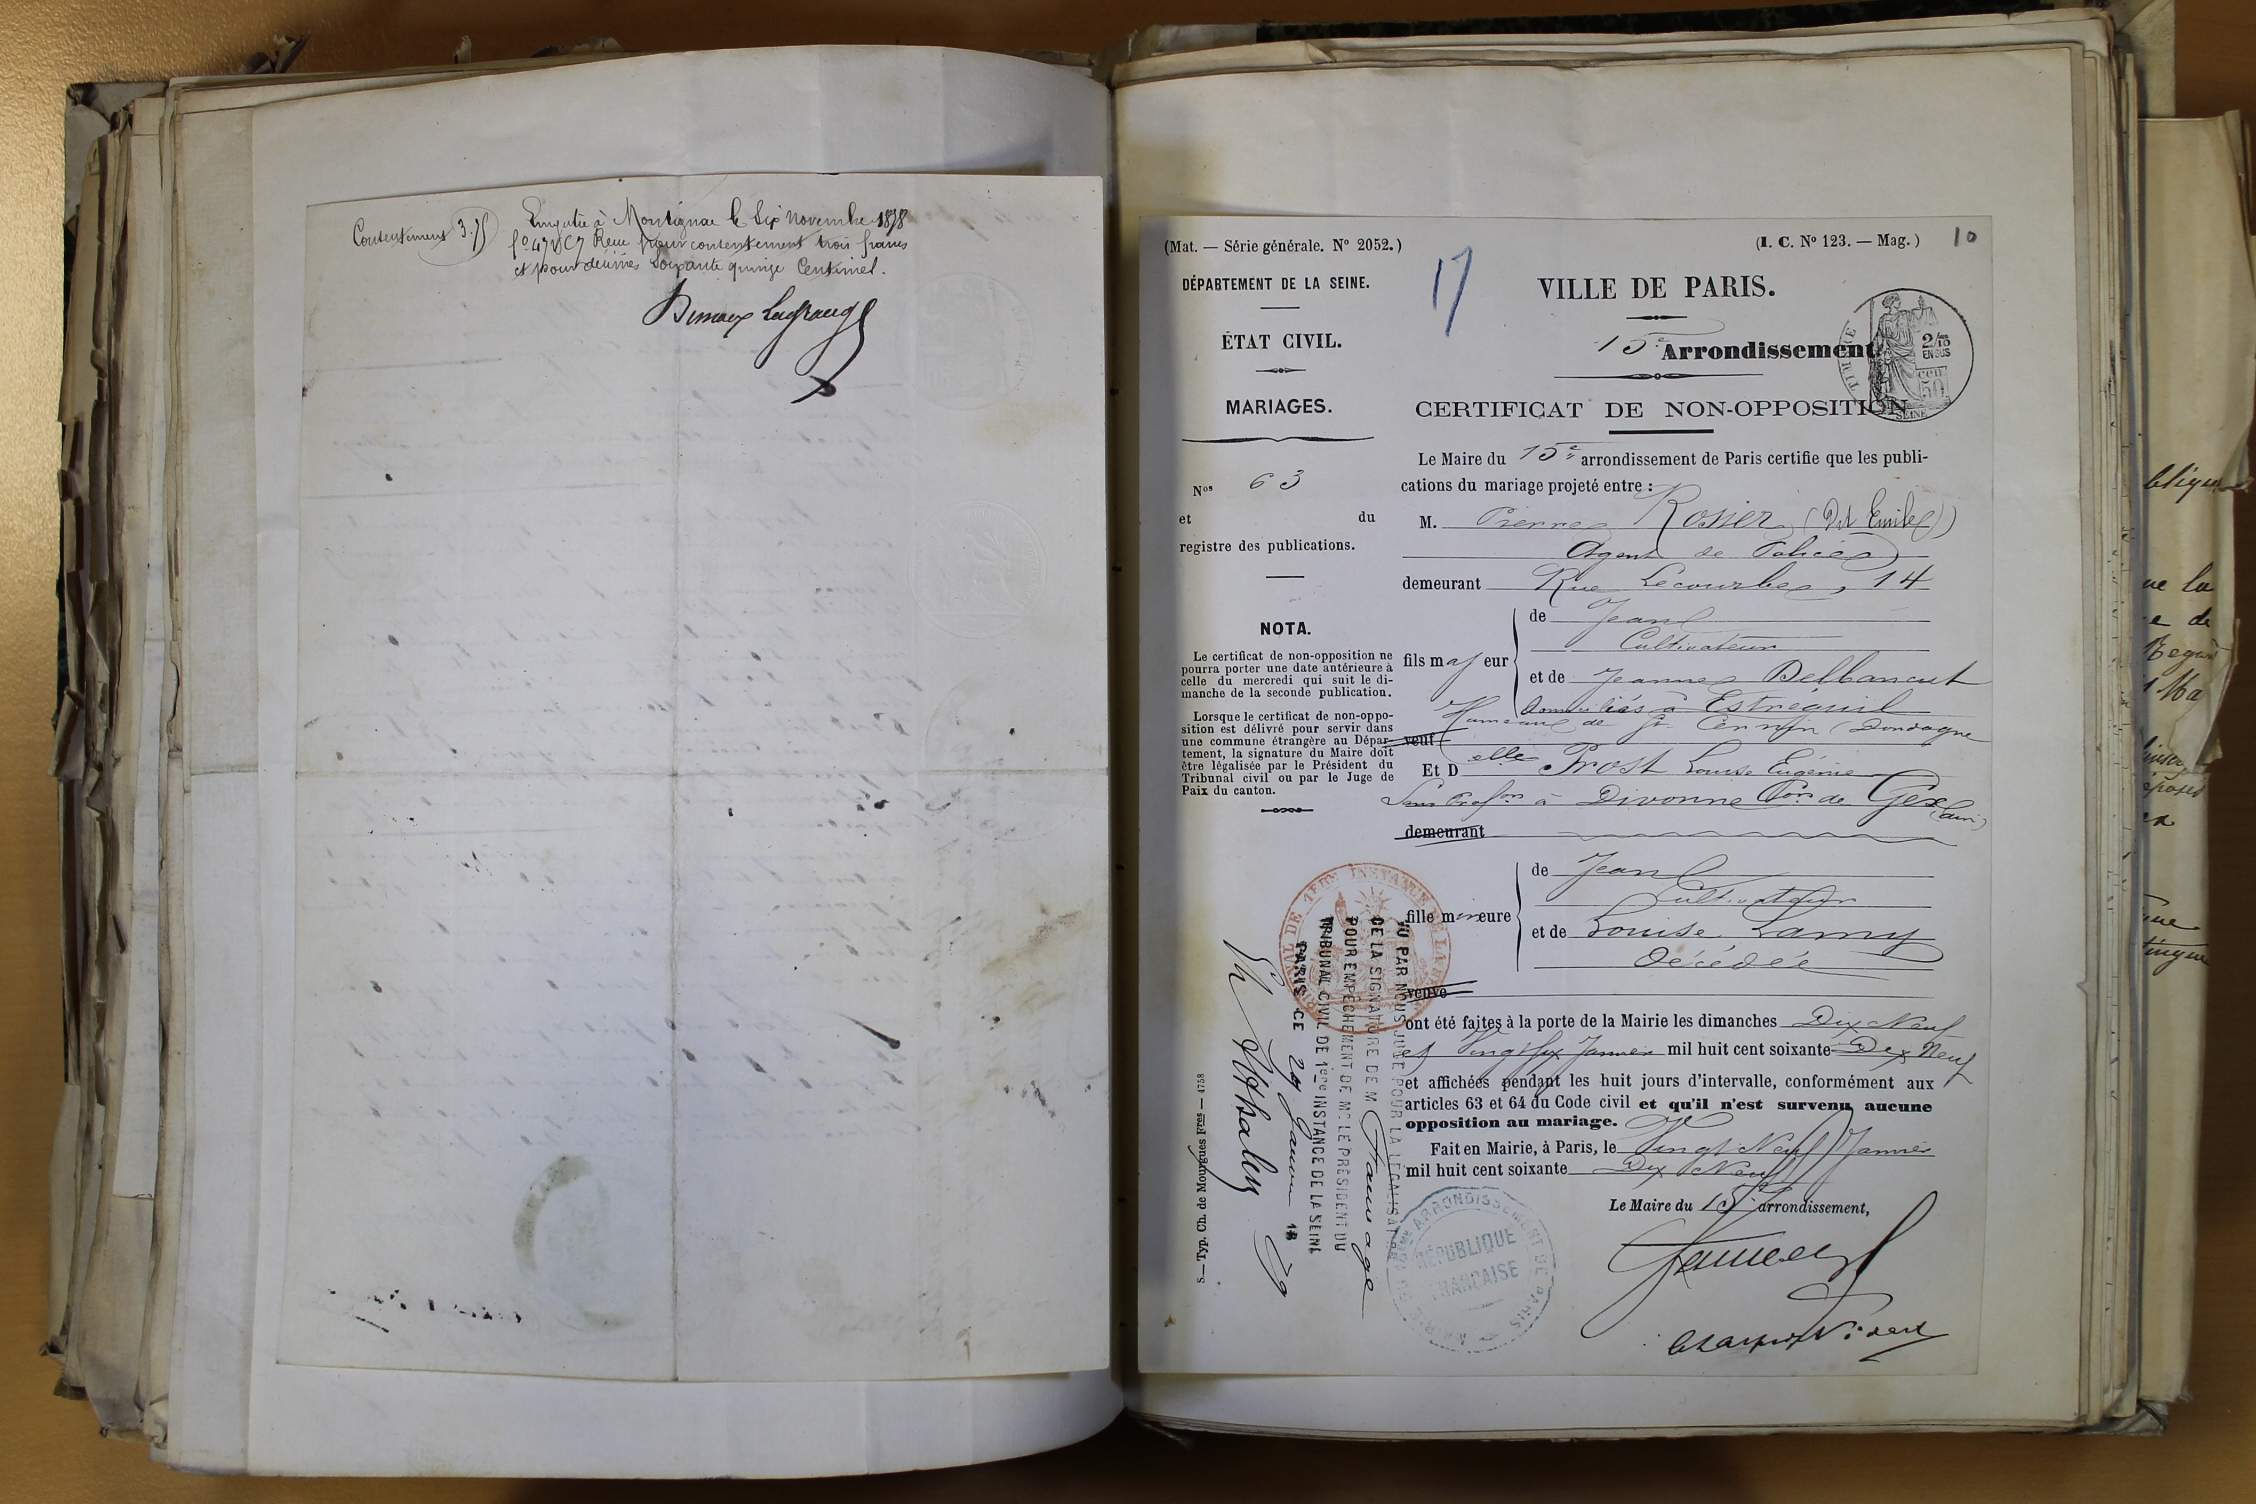 Contentement 3.75
Enregistré à Montignac le Six novembre 1878
fo 47 v C 7 Reçu pour contentement trois francs
et pour décimes Soixante quinze Centimes.
(Mat. — Série générale. No 2052.)
(I. C. No 123. — Mag.)
10
17
DÉPARTEMENT DE LA SEINE.
ÉTAT CIVIL.
MARIAGES.
Nos 63
et du
registre des publications.
NOTA.
Le certificat de non-opposition ne
pourra porter une date antérieure à
celle du mercredi qui suit le di-
manche de la seconde publication.
Lorsque le certificat de non-oppo-
sition est délivré pour servir dans
une commune étrangère au Dépar-
tement, la signature du Maire doit
être légalisée par le Président du
Tribunal civil ou par le Juge de
Paix du canton.
VILLE DE PARIS.
15e Arrondissement
2/10
EN SUS
50
SEINE
CERTIFICAT DE NON-OPPOSITION
Le Maire du 15e arrondissement de Paris certifie que les publi-
cations du mariage projeté entre :
M. Pierre Rosier (Dit Emile)
Agent de Police
demeurant Rue Lecourbe, 14
de Jean
Cultivateur
fils majeur
et de Jeanne Delbancut
Domiciliés à Estréguil
Hameau de St Cernin (Dordogne
veuf
Et Delle Prost Louise Eugénie
Sans Profon à Divonne Con de Gex (ain)
demeurant
de Jean
Cultivateur
fille mineure
et de Louise Lamy
Décédée
veuve
ont été faites à la porte de la Mairie les dimanches Dix Neuf
et Vingt Six Janvier mil huit cent soixante Dix Neuf
et affichées pendant les huit jours d'intervalle, conformément aux
articles 63 et 64 du Code civil et qu'il n'est survenu aucune
opposition au mariage.
Fait en Mairie, à Paris, le Vingt Neuf Janvier
mil huit cent soixante Dix Neuf
Le Maire du 15e arrondissement,
VU PAR NOUS JUGE POUR LA LÉGALISATION
DE LA SIGNATURE DE M
POUR EMPÊCHEMENT DE MR LE PRÉSIDENT DU
TRIBUNAL CIVIL DE 1ERE INSTANCE DE LA SEINE
PARIS CE 29 Janvier 18 79
TRIBUNAL DE 1ERE INSTANCE DE LA SEINE
MAIRIE DU 15EME ARRONDISSEMENT DE PARIS
RÉPUBLIQUE
FRANÇAISE
S.— Typ. Ch. de Mourgues Fres — 4758